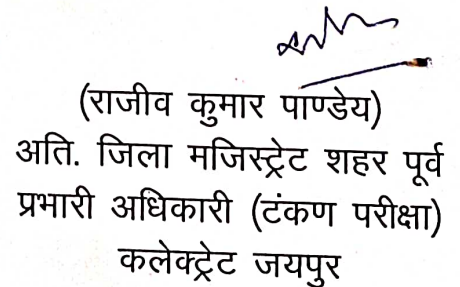 (राजीव कुमार पाण्डेय)
अति. जिला मजिस्ट्रेट शहर पूर्व
प्रभारी अधिकारी (टंकण परीक्षा)
कलेक्ट्रेट जयपुर